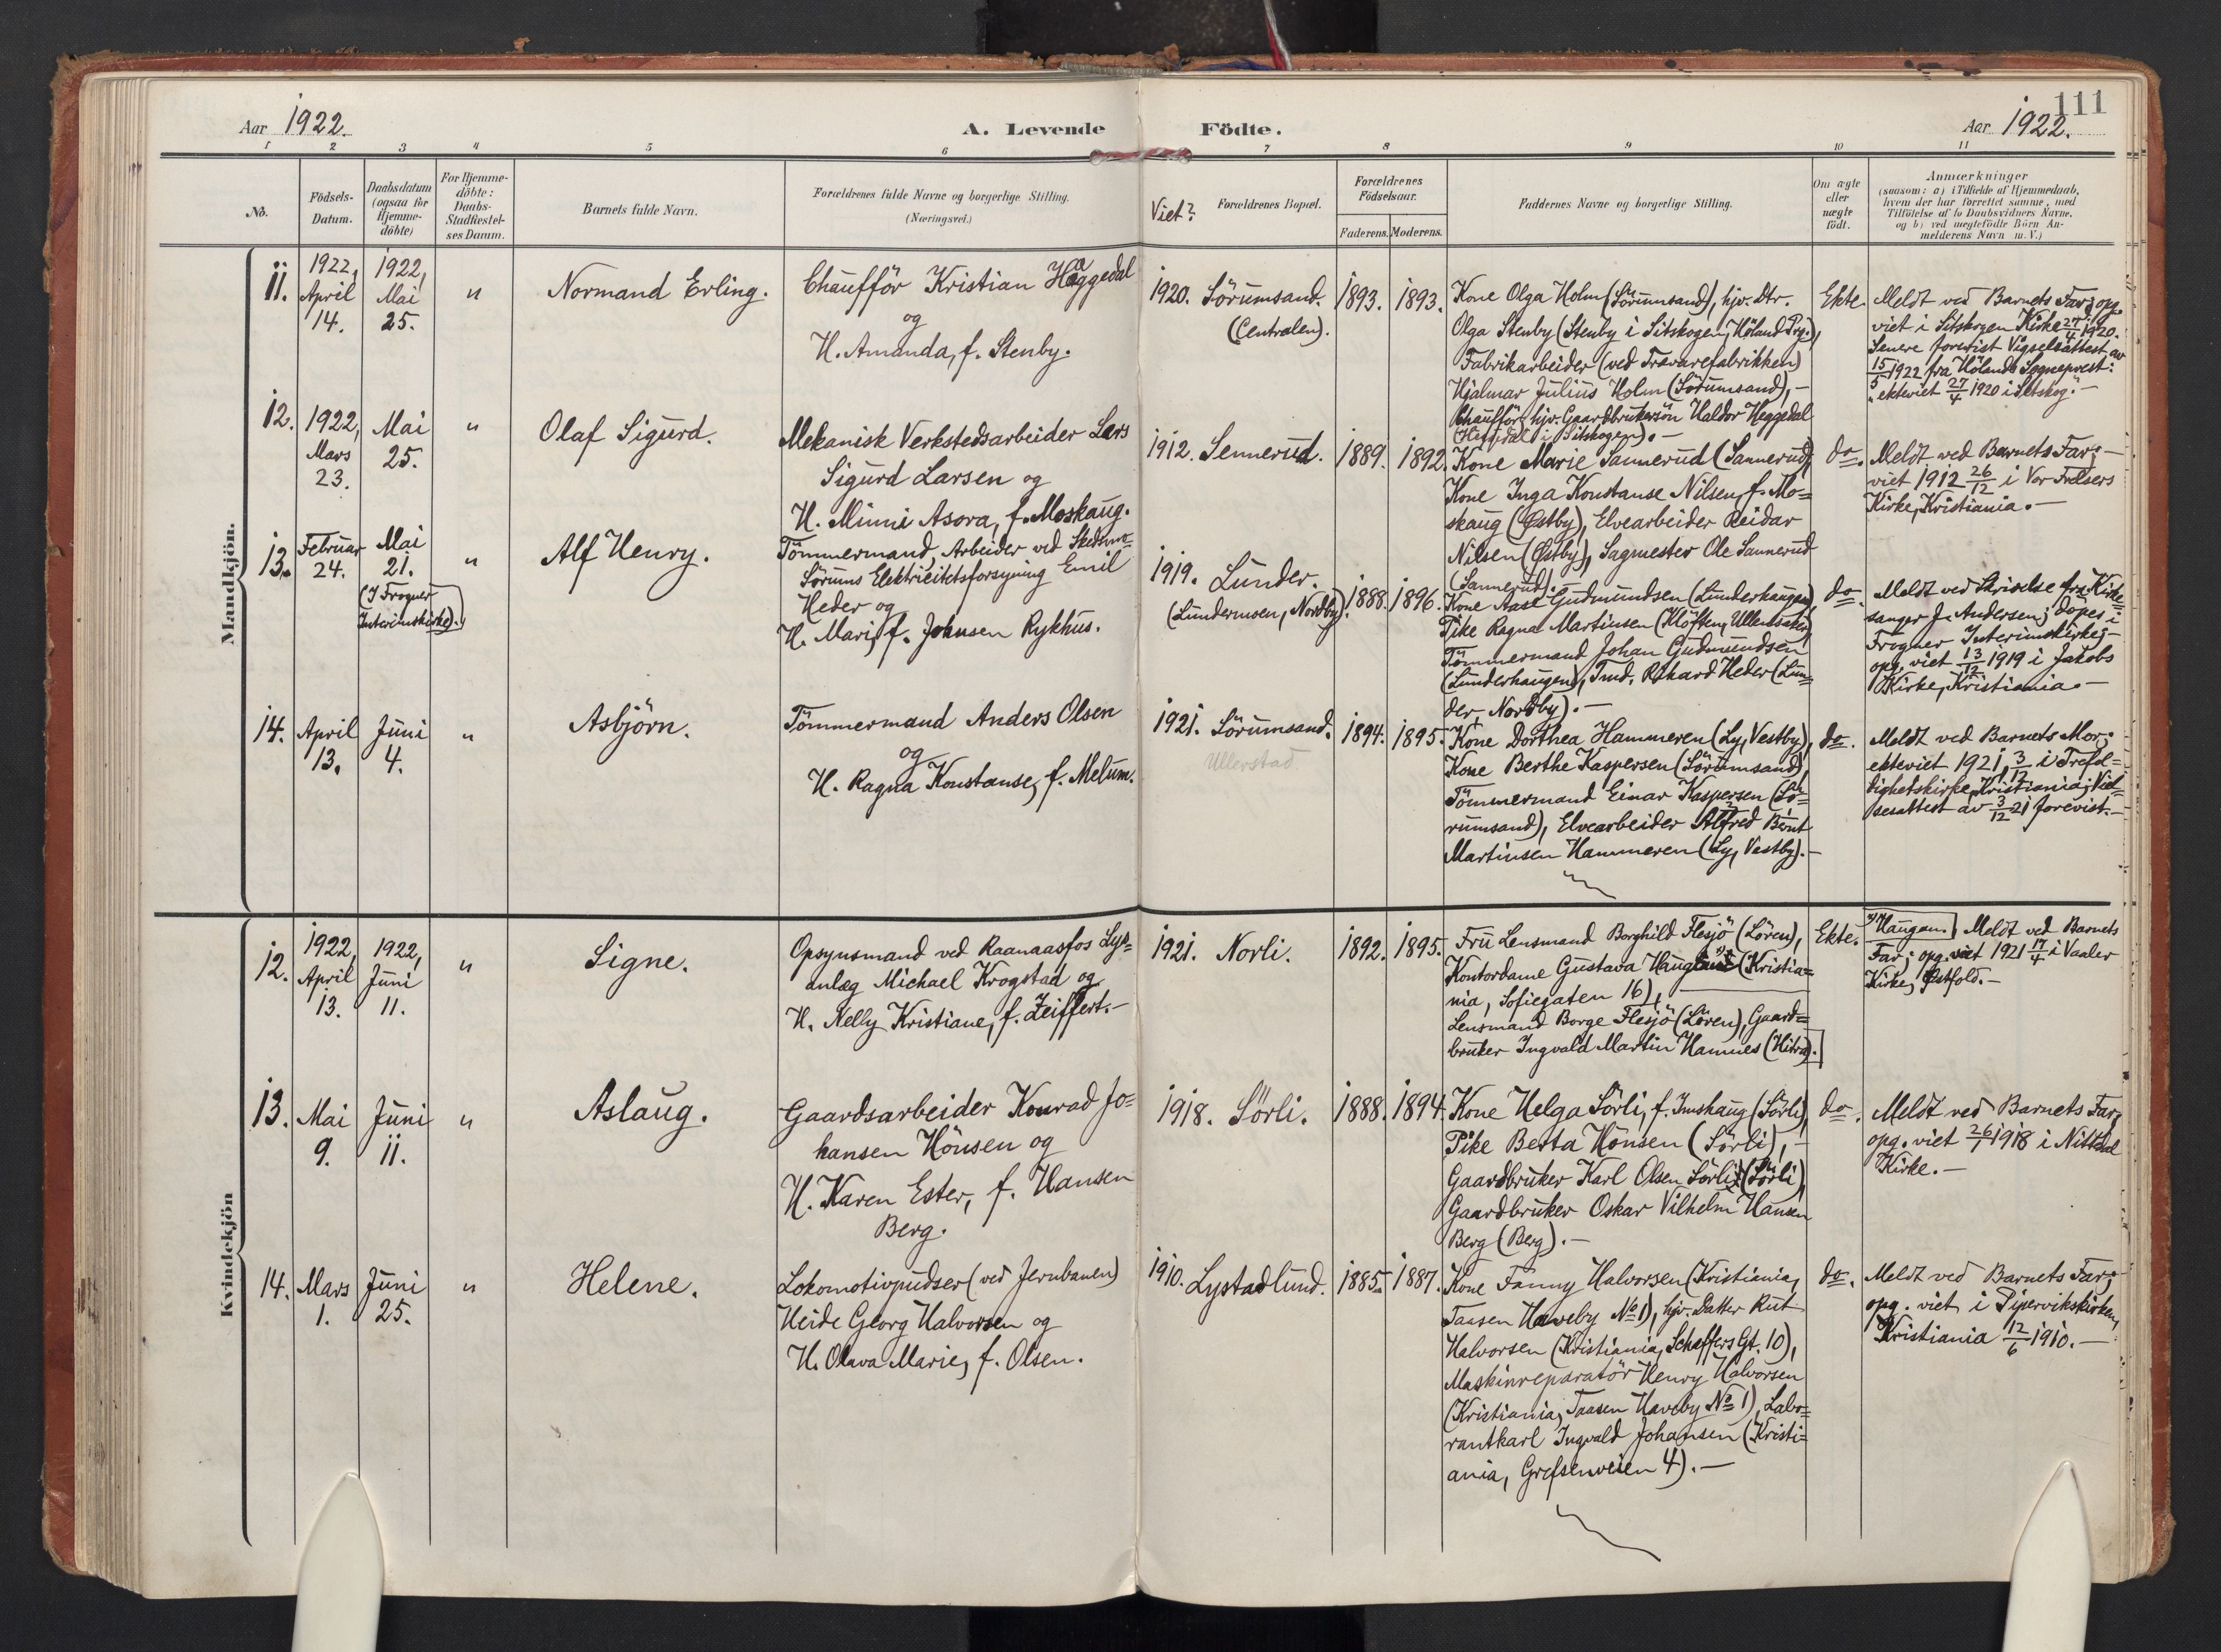 111
Aar 1922.
A. Levende Födte.
Aar 1922.
1 2 3 4 5 6 7 8 9 10 11
No.
Födsels-
Datum.
Daabsdatum
(ogsaa for
Hjemme-
döbte)
For Hjemme-
döbte:
Daabs-
Stadfæstel-
ses Datum.
Barnets fulde Navn.
Forældrenes fulde Navne og borgerlige Stilling.
(Næringsvei.)
Viet?
Forældrenes Bopæl.
Forældrenes
Födselsaar.
Faderens. Moderens.
Faddernes Navne og borgerlige Stilling.
Om ægte
eller
uægte
födt.
Anmærkninger
(saasom: a) i Tilfælde af Hjemmedaab,
hvem der har forrettet samme, med
Tilföielse af to Daabsvidners Navne.
og b) ved uægtefödte Börn An-
melderens Navn m. V.)
Mandkjön.
11.
1922,
April
14.
1922,
Mai
25.
"
Normand Erling.
Chaufför Kristian Haggedal
og
H. Amanda, f. Stenby.
1920.
Sörumsand.
(Centralen).
1893.
1893.
Kone Olga Holm (Sörumsand), hjv. Dtr.
Olga Stenby (Stenby i Sitskogen, Höland Prj.),
Fabrikarbeider (ved Trævarefabrikken)
Hjalmar Julius Holm (Sörumsand), -
Chaufför, hjv. Gaardbrukersön Haldor Heggedal
(Heggedal i Sitskogen). -
Ekte.
Meldt ved Barnets Far; opg.
viet i Sitskogen Kirke 27/4 1920.
Senere forevist Vigselsattest av
15/5 1922 fra Hölands Sogneprest:
"ekteviet 27/4 1920 i Setskog". -
12.
1922,
Mars
23.
Mai
25.
"
Olaf Sigurd.
Mekanisk Verkstedsarbeider Lars
Sigurd Larsen og
H. Minni Asora, f. Moskaug.
1912.
Sennerud.
1889.
1892.
Kone Marie Sannerud (Sannerud),
Kone Inga Konstanse Nilsen, f. Mo=
skaug (Østby), Elvearbeider Reidar
Nilsen (Østby), Sagmester Ole Sannerud
(Sannerud).
do.
Meldt ved Barnets Far; -
viet 1912 26/12 i Vor Frelsers
Kirke, Kristiania. -
13.
Februar
24.
Mai
21.
(I Frogner
Interimskirke).
"
Alf Henry.
Tömmermand, Arbeider ved Skedsmo-
Sörums Elektricitetsforsyning Emil
Heder og
H. Mari, f. Johnsen Rykhus.
1919.
Lunder.
(Lundermoen, Nordby).
1888.
1896.
Kone Aase Gudmundsen (Lunderhaugen),
Pike Ragna Martinsen (Klöften, Ullensaker),
Tömmermand Johan Gudmundsen
(Lunderhaugen), Tmd. Rikhard Heder (Lun=
der, Nordby). -
do.
Meldt ved Skrivelse fra Kirke=
sanger J. Andersen; döpes i
Frogner Interimskirke; -
opg. viet 13/12 1919 i Jakobs
Kirke, Kristiania. -
14.
April
13.
Juni
4.
"
Asbjörn.
Tömmermand Anders Olsen
og
H. Ragna Konstanse, f. Melum.
1921.
Sörumsand.
Ullerstad
1894.
1895.
Kone Dorthea Hammeren (Ly, Vestby),
Kone Berthe Kaspersen (Sörumsand),
Tömmermand Einar Kaspersen (Sö=
rumsand), Elvearbeider Alfred Bernt
Martinsen Hammeren (Ly, Vestby). -
do.
Meldt ved Barnets Mor;
ekteviet 1921, 3/12 i Trefol=
dighetskirke, Kristiania; Viel=
sesattest av 3/12 21 forevist. -
Kvindekjön
12.
1922,
April
13.
1922,
Juni
11.
"
Signe.
Opsynsmand ved Raanaasfos Lys=
anlæg Michael Krogstad og
H. Nelly Kristiane, f. Zeiffert. -
1921.
Norli.
1892.
1895.
Fru Lensmand Borghild Flesjö (Lören),
Kontordame Gustava Haugland (Kristia=
nia, Sofiegaten 16),
Lensmand Borge Flesjö (Lören), Gaard=
bruker Ingvald Martin Hamnes (Hitra).
Ekte.
Haugan. Meldt ved Barnets
Far; opg. viet 1921 17/4 i Vaaler
Kirke, Østfold. -
13.
Mai
9.
Juni
11.
"
Aslaug.
Gaardsarbeider Konrad Jo=
hansen Hönsen og
H. Karen Ester, f. Hansen
Berg.
1918.
Sörli.
1888.
1894.
Kone Helga Sörli, f. Imshaug (Sörli),
Pike Berta Hönsen (Sörli), -
Gaardbruker Karl Olsen Sörli (Sörli),
Gaardbruker Oskar Vilhelm Hansen
Berg (Berg). -
do.
Meldt ved Barnets Far,
opg. viet 26/1 1918 i Nittedal
Kirke. -
14.
Mars
1.
Juni
25.
"
Helene.
Lokomotivpudser (ved Jernbanen)
Heide Georg Halvorsen og
H. Olava Marie, f. Olsen.
1910.
Lystadlund.
1885.
1887.
Kone Fanny Halvorsen (Kristiania,
Taasen Haveby No 1), hjv. Datter Rut
Halvorsen (Kristiania, Scheffers Gt. 10),
Maskinreparatör Henry Halvorsen
(Kristiania, Taasen Haveby No 1), Labo=
rantkarl Ingvald Johansen (Kristi=
ania, Grefsenveien 4). -
do.
Meldt ved Barnets Far;
opg. viet i Pipervikskirken,
Kristiania 12/6 1910. -